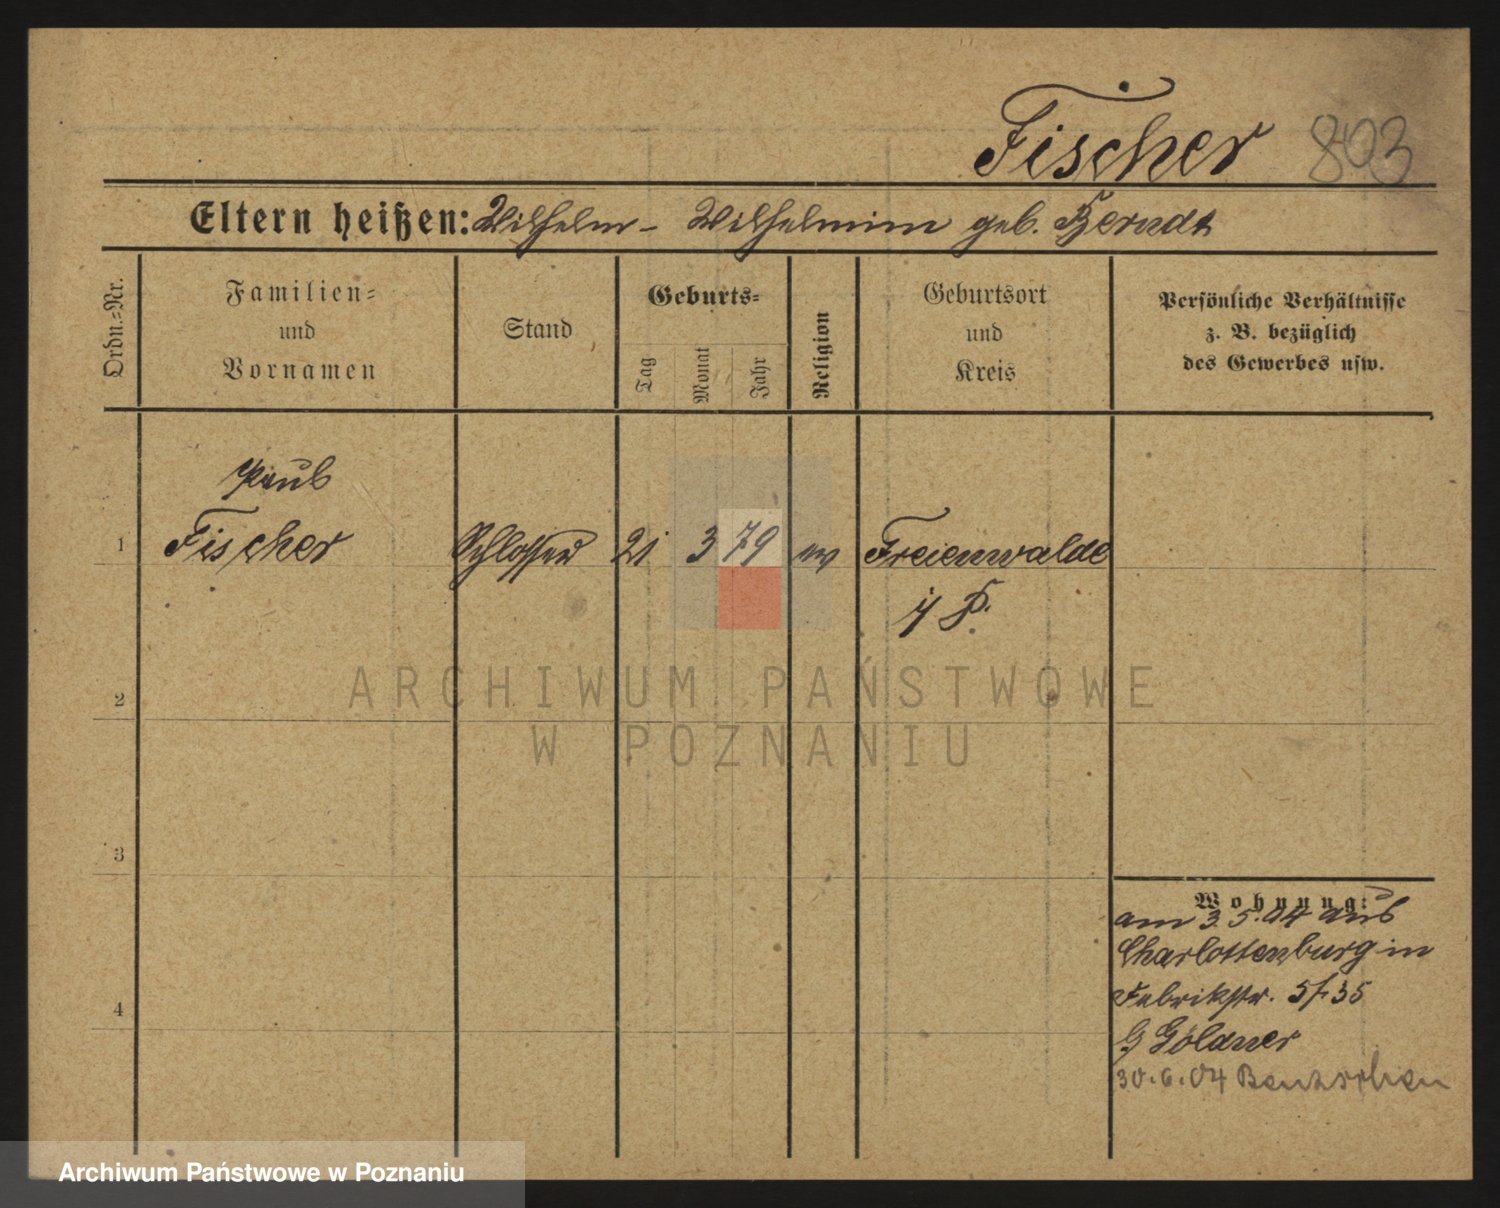 Fischer 803
Eltern heißen: Wilhelm - Wilhelmine geb. Berndt
Ordn.-Nr.
Familien-
und
Vornamen
Stand
Geburts-
Tag
Monat
Jahr
Religion
Geburtsort
und
Kreis
Persönliche Verhältnisse
z. B. bezüglich
des Gewerbes usw.
Paul
1 Fischer Schlosser 21 3 79 ev Freienwalde
i/ P.
2
ARCHIWUM PAŃSTWOWE
W POZNANIU
3
4
Wohnung:
am 3.5.04 aus
Charlottenburg in
Fabrikstr. 5/35
Göldner
30.6.04 Bentschen
Archiwum Państwowe w Poznaniu